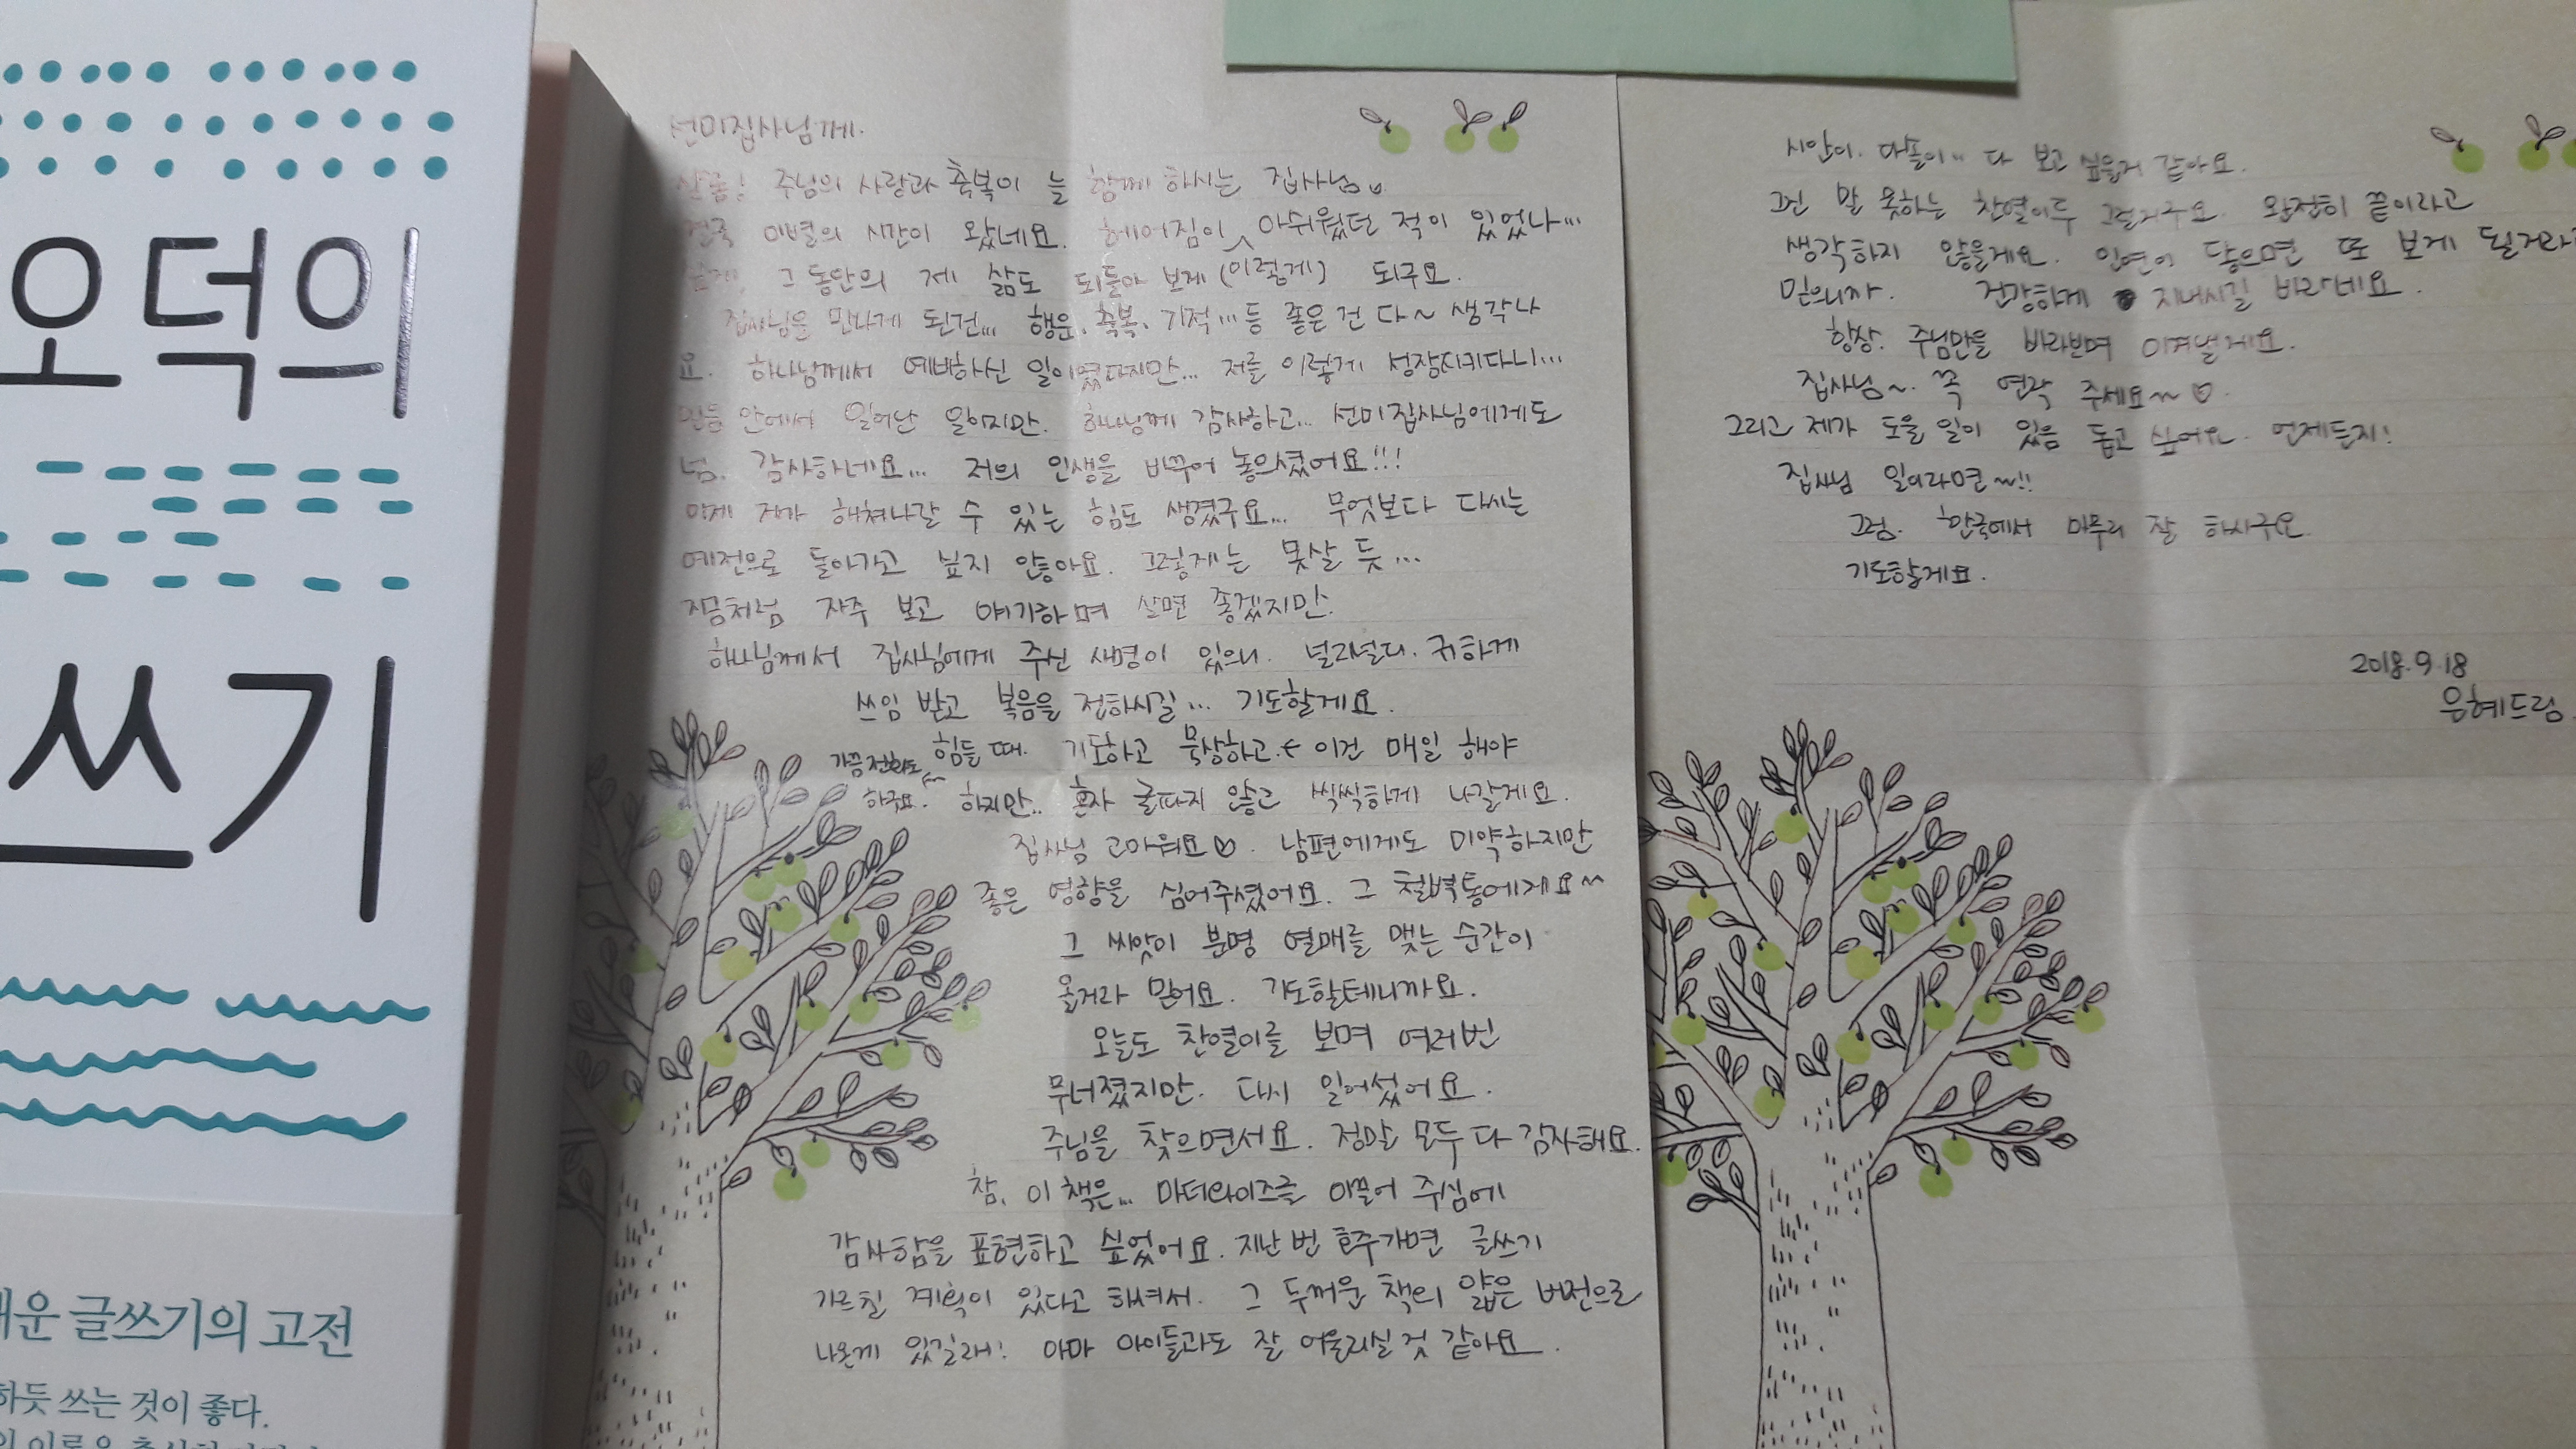 오덕의
쓰기
운 글쓰기의 고전
하듯 쓰는 것이 좋다.
선미집사님께.
샬롬! 주님의 사랑과 축복이 늘 함께 하시는 집사님
결국 이별의 시간이 왔네요. 헤어짐이 아쉬웠던 적이 있었나...
그동안의 제 삶도 되돌아 보게 (이렇게) 되구요.
집사님을 만나게 된건... 행운, 축복, 기적... 등 좋은 건 다~ 생각나
요. 하나님께서 예비하신 일이였다지만... 저를 이렇게 성장시키다니...
믿음 안에서 일어난 일이지만. 하나님께 감사하고... 선미집사님에게도
넘. 감사하네요... 저의 인생을 바꾸어 놓으셨어요!!!
이제 제가 헤쳐나갈 수 있는 힘도 생겼구요... 무엇보다 다시는
예전으로 돌아가고 싶지 않아요. 그렇게는 못살 듯...
지금처럼 자주 보고 얘기하며 살면 좋겠지만.
하나님께서 집사님에게 주신 사명이 있으니. 널리널리. 귀하게
쓰임 받고 복음을 전하시길... 기도할게요.
힘들 때. 기도하고 묵상하고. 이건 매일 해야
가끔 전화도
하구요. 하지만.. 혼자 굴파지 않고 씩씩하게 나갈게요.
집사님 고마워요♡. 남편에게도 미약하지만
좋은 영향을 심어주셨어요. 그 철벽통에게요~
그 씨앗이 분명 열매를 맺는 순간이
올거라 믿어요. 기도할테니까요.
오늘도 찬열이를 보며 여러번
무너졌지만. 다시 일어섰어요.
주님을 찾으면서요. 정말 모두 다 감사해요.
참, 이 책은... 마더와이즈를 이끌어 주심에
감사함을 표현하고 싶었어요. 지난 번 호주가면 글쓰기
가르칠 계획이 있다고 하셔서. 그 두꺼운 책의 얇은 버전으로
나온게 있길래! 아마 아이들과도 잘 어울리실 것 같아요.
시안이. 다솔이.. 다 보고 싶을거 같아요.
그건 말 못하는 찬열이두 그럴거구요. 완전히 끝이라고
생각하지 않을게요. 인연이 닿으면 또 보게 될거라
믿으니까. 건강하게 지내시길 바라네요.
항상. 주님만을 바라보며 이겨낼게요.
집사님~. 꼭 연락 주세요~♡.
그리고 제가 도울 일이 있음 돕고 싶어요. 언제든지!
집사님 일이라면~!!
그럼. 한국에서 마무리 잘 하시구요.
기도할게요.
2018.9.18
은혜드림.